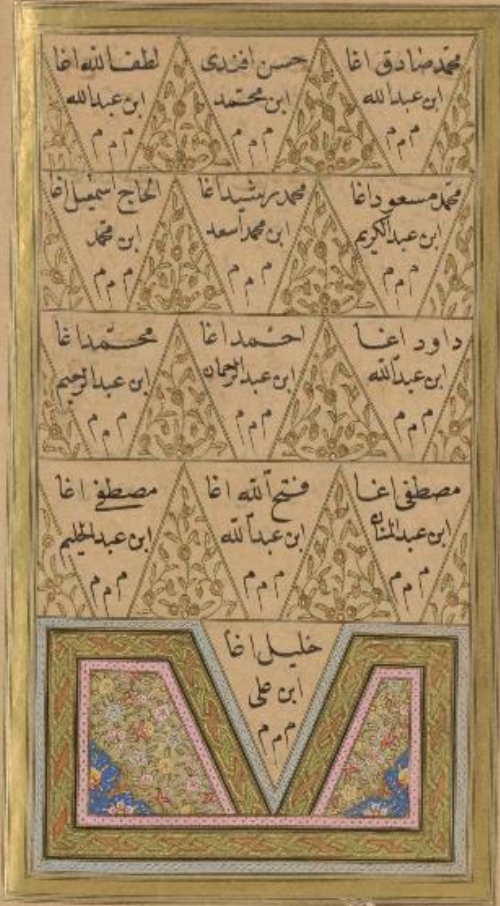 محمد صادق اغا
ابن عبدالله
م م م
حسن افندی
ابن محمد
م م م
لطف الله اغا
ابن عبدالله
م م م
محمد مسعود اغا
ابن عبدالکریم
م م م
محمد رشید اغا
ابن محمد اسعد
م م م
الحاج اسمعیل اغا
ابن محمد
م م م
داود اغا
ابن عبدالله
م م م
احمد اغا
ابن عبدالرحمان
م م م
محمد اغا
ابن عبدالرحیم
م م م
مصطفی اغا
ابن عبدالمنان
م م م
فتح الله اغا
ابن عبدالله
م م م
مصطفی اغا
ابن عبدالحلیم
م م م
خلیل اغا
ابن علی
م م م